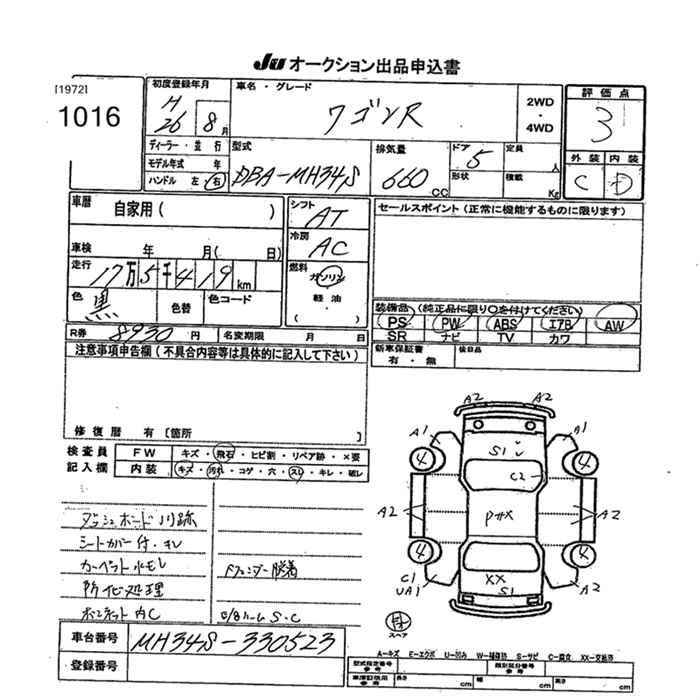 JU オークション出品申込書
[1972]
1016
初度登録年月
H 26 8月
車名・グレード
ワゴンR
2WD
・
4WD
評価点
3
外装 内装
C D
ディーラー・並行
モデル年式 年
ハンドル 左・右
型式
DBA-MH34S
排気量
660 CC
ドア 5
形状
定員 人
積載 Kg
車歴
自家用( )
シフト
AT
冷房
AC
セールスポイント(正常に機能するものに限ります)
車検 年 月( 日)
走行
17万5千419km
燃料
ガソリン
軽油
( ・ )
色 黒
色替
色コード
装備品(純正品に限り○を付けてください)
PS PW ABS エアB AW
SR ナビ TV カワ
R券 8930 円
名変期限 月 日
新車保証書
有・無
後日品
注意事項申告欄(不具合内容等は具体的に記入して下さい)
修復歴 有 [箇所
検査員
記入欄
FW キズ・飛石・ヒビ割・リペア跡・×要
内装 キズ・汚れ・コゲ・穴・スレ・キレ・破レ
ダッシュボード
シートカバー付・キレ
カーペット
Fフェンダー脱着
防化処理
ボンネット内C
S・C
車台番号
MH34S-330523
登録番号
A2 A2
A1 A1
S1
C2
4 4
A2 A2
P#X
4 4
C1
UA1
XX
S1
A2
スペア
A-キズ E-エクボ U-凹み W-補修跡 S-サビ C-腐食 XX-交換済
型式指定番号
参考
類別区分番号
参考
車庫証明用
参考
長さ cm
幅 cm
高さ cm